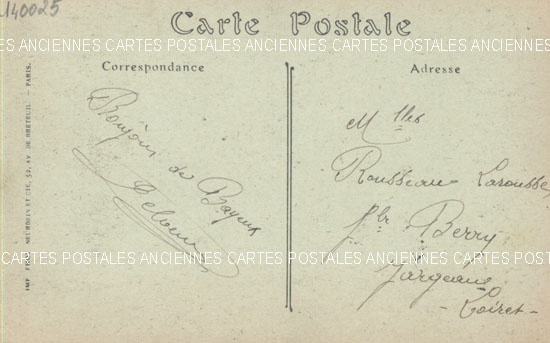 140025
Carte Postale
ANCIENNES CARTES POSTALES ANCIENNES CARTES POSTALES ANCIENNES CARTES POSTALES
Correspondance
Adresse
Bonjour de Bayeux
Mlles
Rousseau Larousse
fbr Berry
Jargeau
- Loiret -
CARTES POSTALES ANCIENNES CARTES POSTALES ANCIENNES CARTES POSTALES ANCIENNES
NEURDEIN ET CIE, 52, AV. DE BRETEUIL. — PARIS.